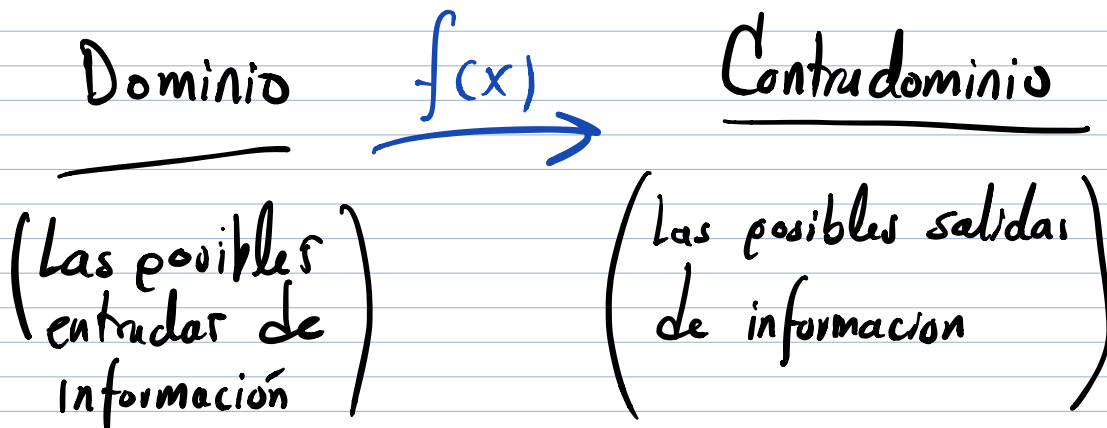 Dominio f(x) Contradominio
(Las posibles
entradas de
información)
(Las posibles salidas
de informacion)